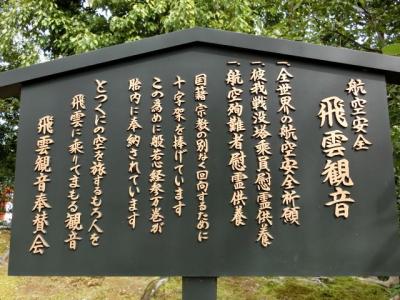 航空安全
飛雲観音
一、全世界の航空安全祈願
一、彼我戦没塔乗員慰霊供養
一、航空殉難者慰霊供養
国籍宗教の別なく回向するために
十字架を捧げています
この為めに般若心経参万巻が
胎内に奉納されています
とつくにの空を旅するもろ人を
飛雲に乗りてまもる観音
飛雲観音奉賛会